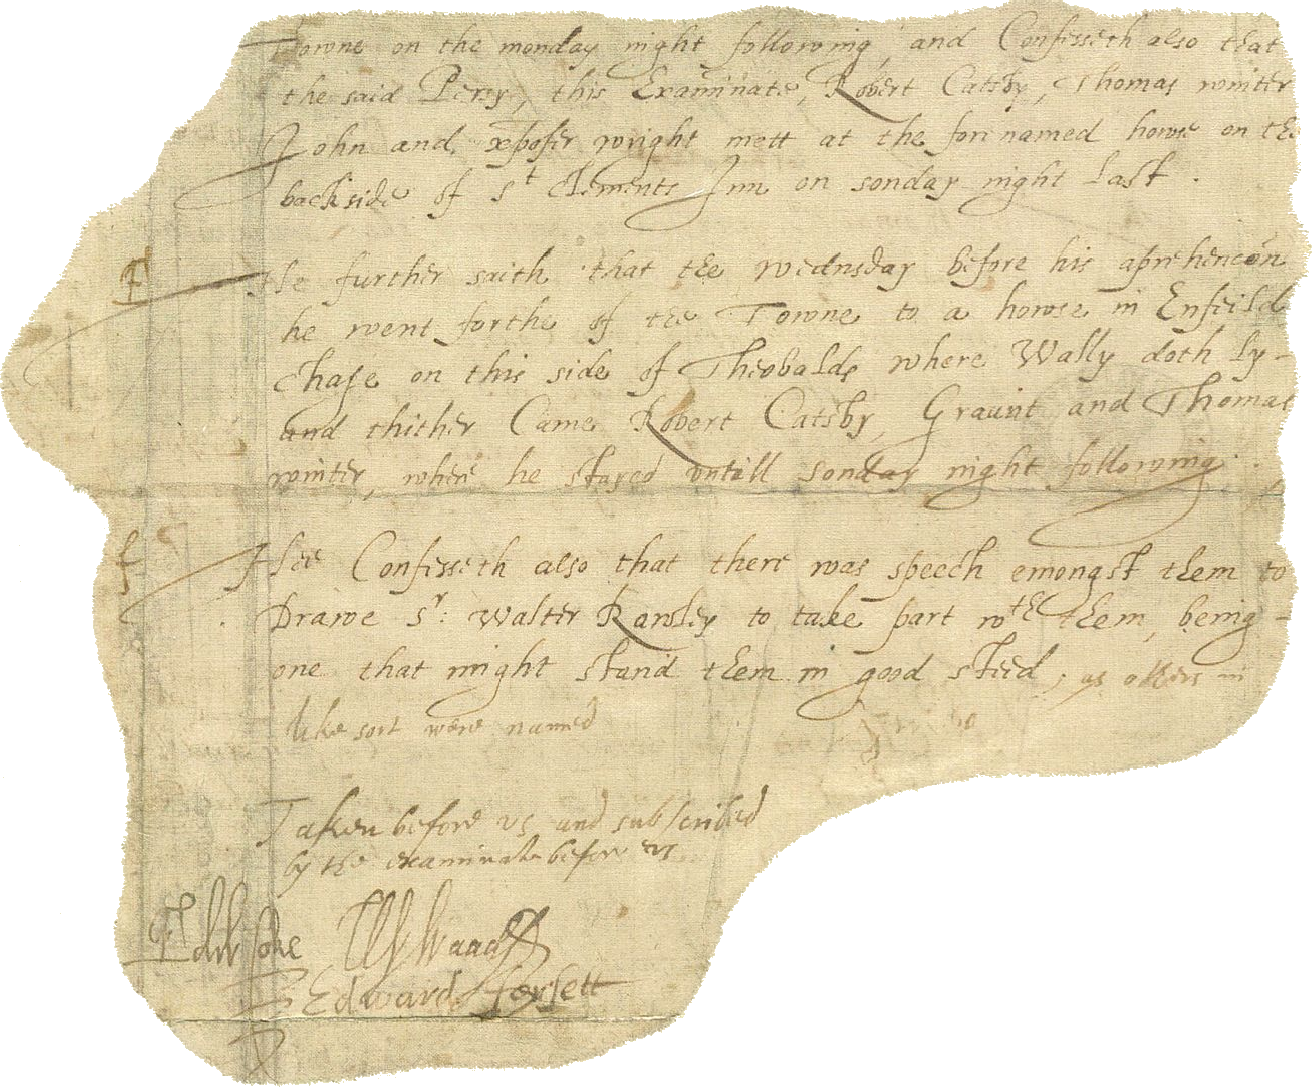 Towne on the monday night following, and Confesseth also that
the said Percy, this Examinate, Robert Catsby, Thomas winter
John and xpofer wright mett at the fore named howse on the
backside of St Clements Inn on sonday night last.
F He further saith that the wednsday before his aprehencon
he went forthe of the Towne to a howse in Enfeild
Chase on this side of Theobalds where Wally doth ly-
and thither Came Robert Catsby, Graunt and Thomas
winter, where he stayed untill sonday night following.
f Hee Confesseth also that there was speech emongst them to
Drawe Sr: Walter Rawley to take part wth them, being-
one that might stand them in good steed, as others in
like sort were named
Taken before us and subscribed
by the examinate before us
Edw Coke W Waad
Edward fforsett